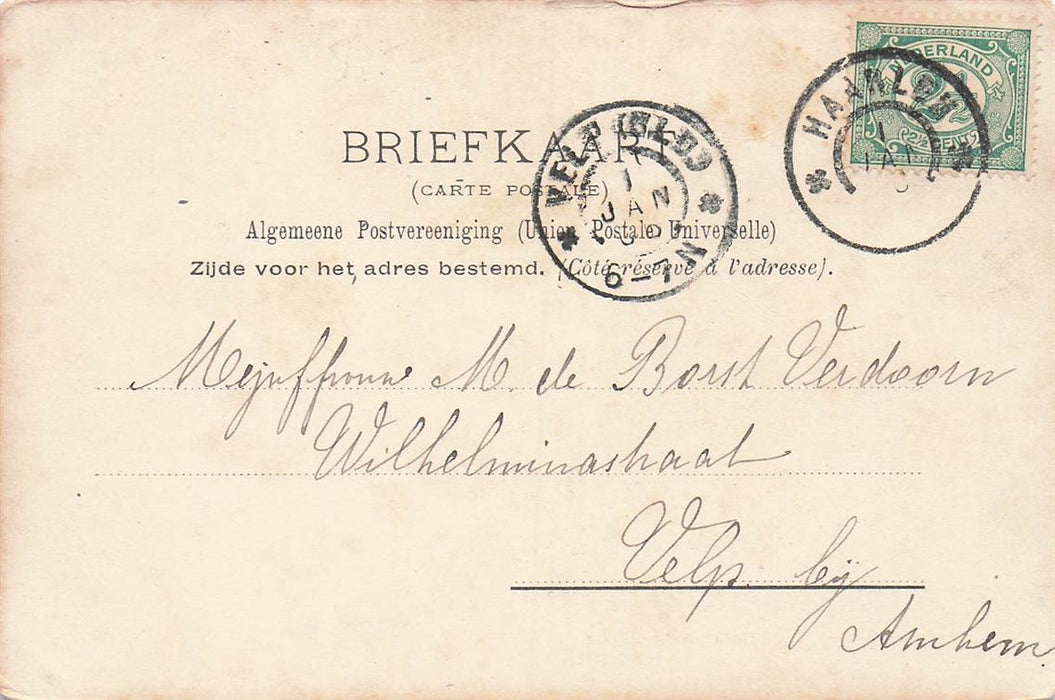 NEDERLAND
2½
2½ CENT
HAARLEM
1
JAN
BRIEFKAART
(CARTE POSTALE)
Algemeene Postvereeniging (Union Postale Universelle)
Zijde voor het adres bestemd. (Côté réservé à l'adresse).
VELP (GLD)
1
JAN
6-7 N
Mejuffrouw M. de Borst Verdoorn
Wilhelminastraat
Velp. bij
Arnhem